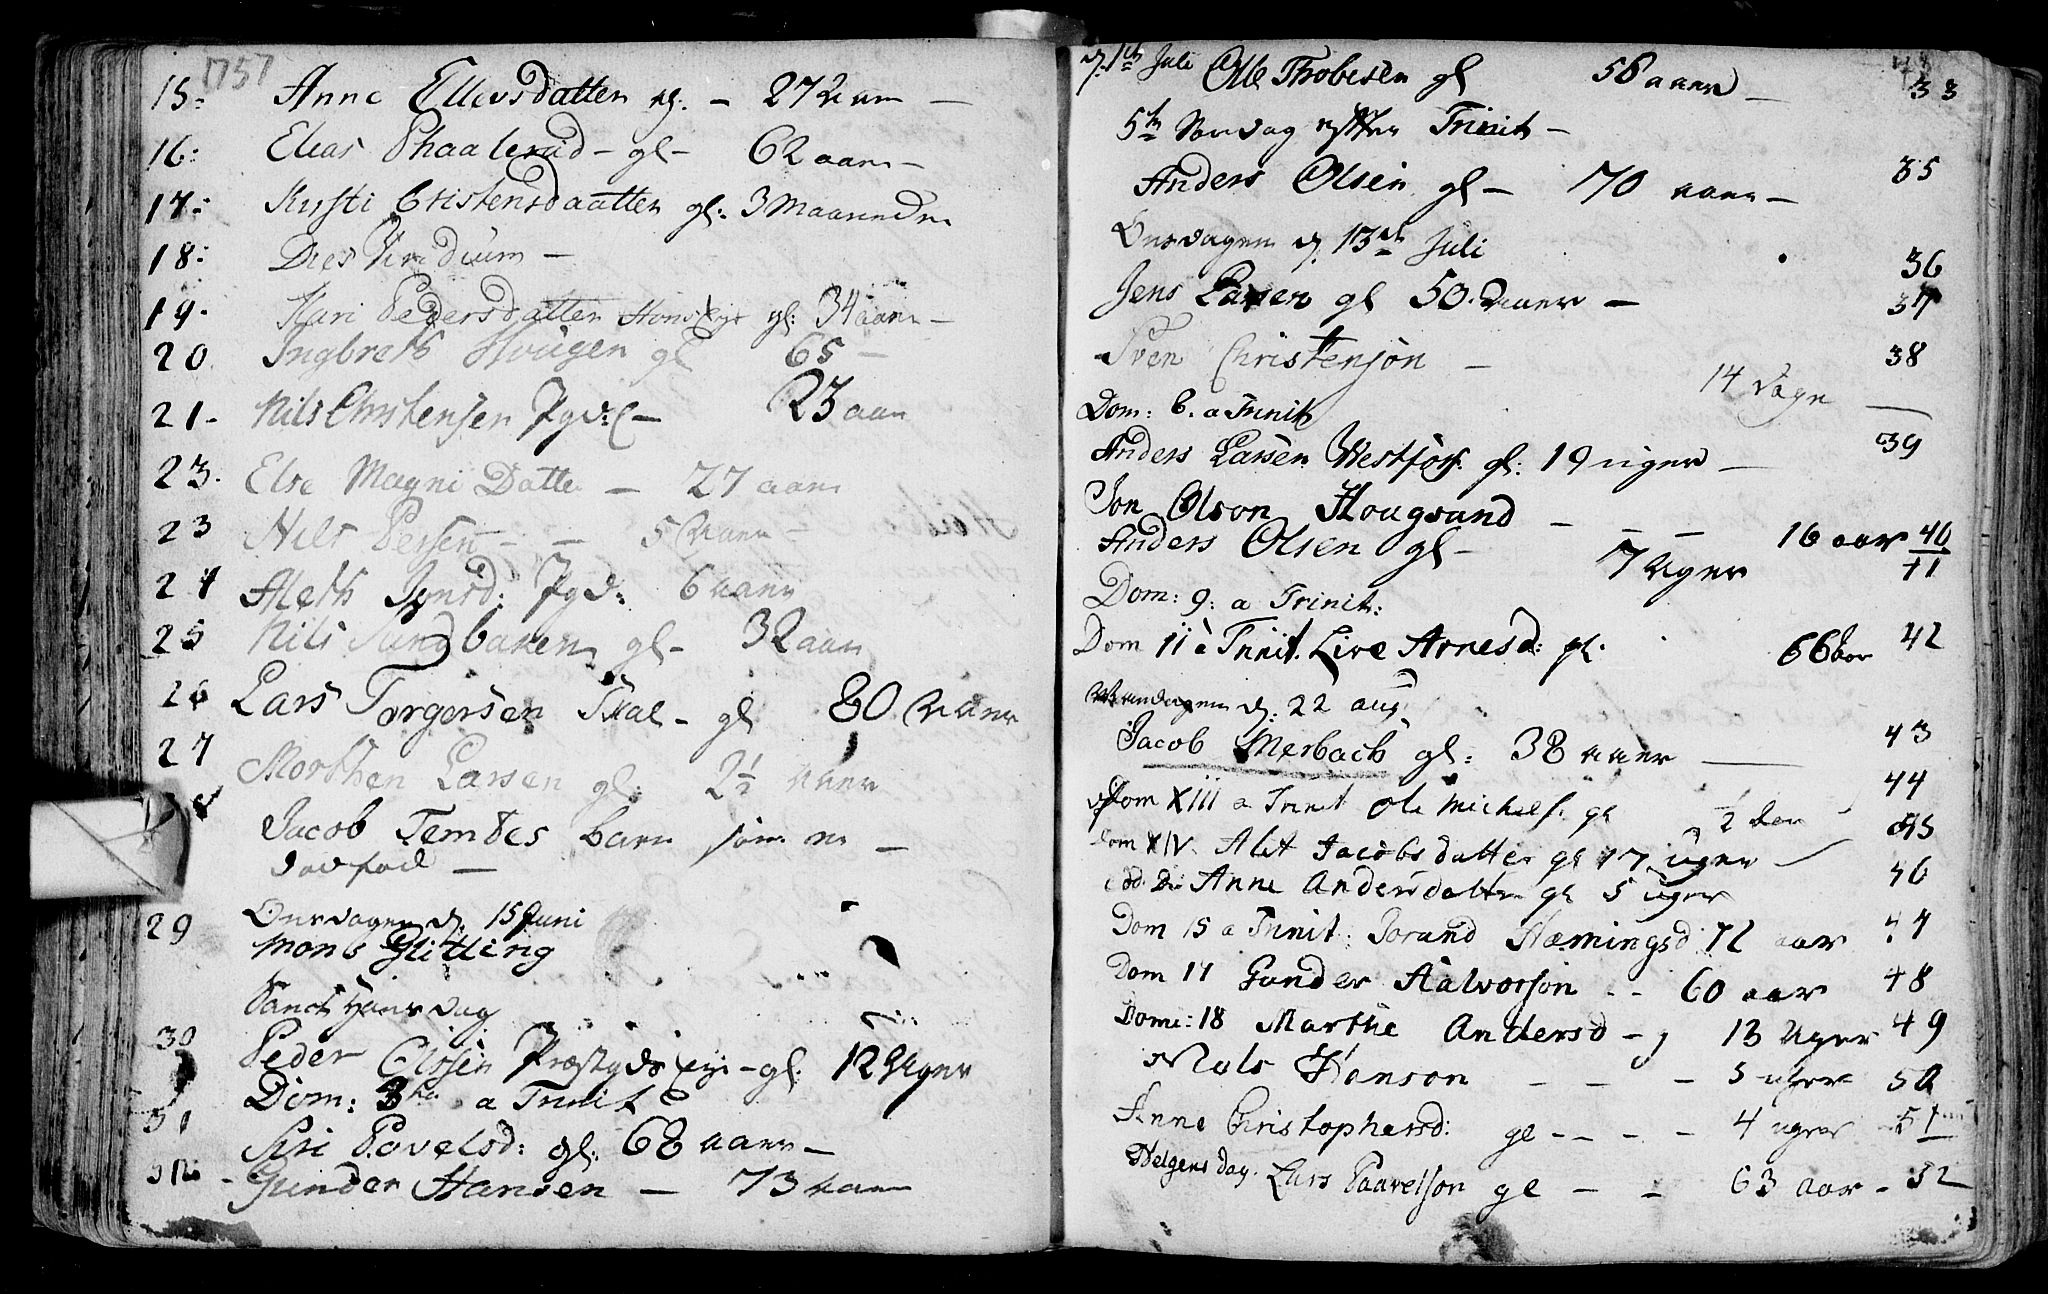 1757
15: Anne Ellevsdatter gl. – 27 Aar –
16: Elias Phaalerud – gl – 62 aar –
17: Kirsti Cristensdaatter gl: 3 Maaneder
18: Dies Viridium –
19. Kari Pedersdatter gl: 34 aar –
20. Ingbreth Hougen gl 65 –
21 – Nils Christensen Pgd: – 23 aar
23. Else Magni Datter – 27 aar
23 Nils Persen – – 5 Aar –
24 Aleth Jonsd: Pgd: 6 aar
25 Nils Sundbaken gl – 32 aar
26 Lars Torgersen Skal – gl 80 Aaer
27 Morthen Larsen gl: 2½ Aaer
Jacob Temtes barn som er
dødfød –
Onsdagen d. 15 Juni
29 Mons Glitting
Sanct Hans dag
30 Peder Olssen Præstgds Eje – gl: 12 Uger
Dom: 3tia a Trinit
31 Siri Povelsd: gl: 68 aar –
Gunder Hansen – 73 aar
d. 1te Juli Olle Thobesen gl 58 aaer – 33
5te Søndag efter Trinit –
Anders Olsen gl – 70 aar – 35
Onsdagen d. 13de Juli
36
Jens Larsen gl 50. Aaer – 37
Sven Christensøn – 14 Dage 38
Dom: 6. a Trinit
Anders Larsen Westfoss. gl: 19 uger – 39
Jon Olson Hougsund – – – 16 aar 40
Anders Olsen gl – 7 Uger 41
Dom: 9: a Trinit:
Dom 11 a Trinit. Live Arnesd: gl. 66 aar 42
Mandagen d: 22 aug
Jacob Merbach gl: 38 aaer – 43
Dom XIII a Trinit Ole Michels: gl ½ 44
Dom XIV. Alet Jacobsdatter gl 17 uger 45
Anne Andersdatter gl 5 uger 46
Dom 15 a Trinit: Jorand Hæmingsd 72 aar 47
Dom 17 Gunder Halvorson – – 60 aar 48
Dom: 18 Marthe Andersd – 13 Uger 49
Mols Hanson – – – 5 uger 50
Anne Christophersd: gl – – – – 4 uger 51
Helgens dag. Lars Paavelson gl – – 63 aar – 52